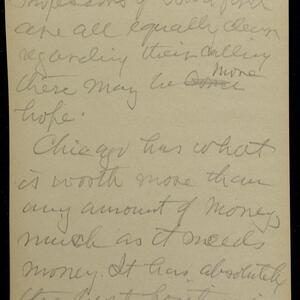 are all equally clear
regarding their calling
there may be some more
hope.
Chicago has what
is worth more than
any amount of money
much as it needs
money. It has absolutely
the best